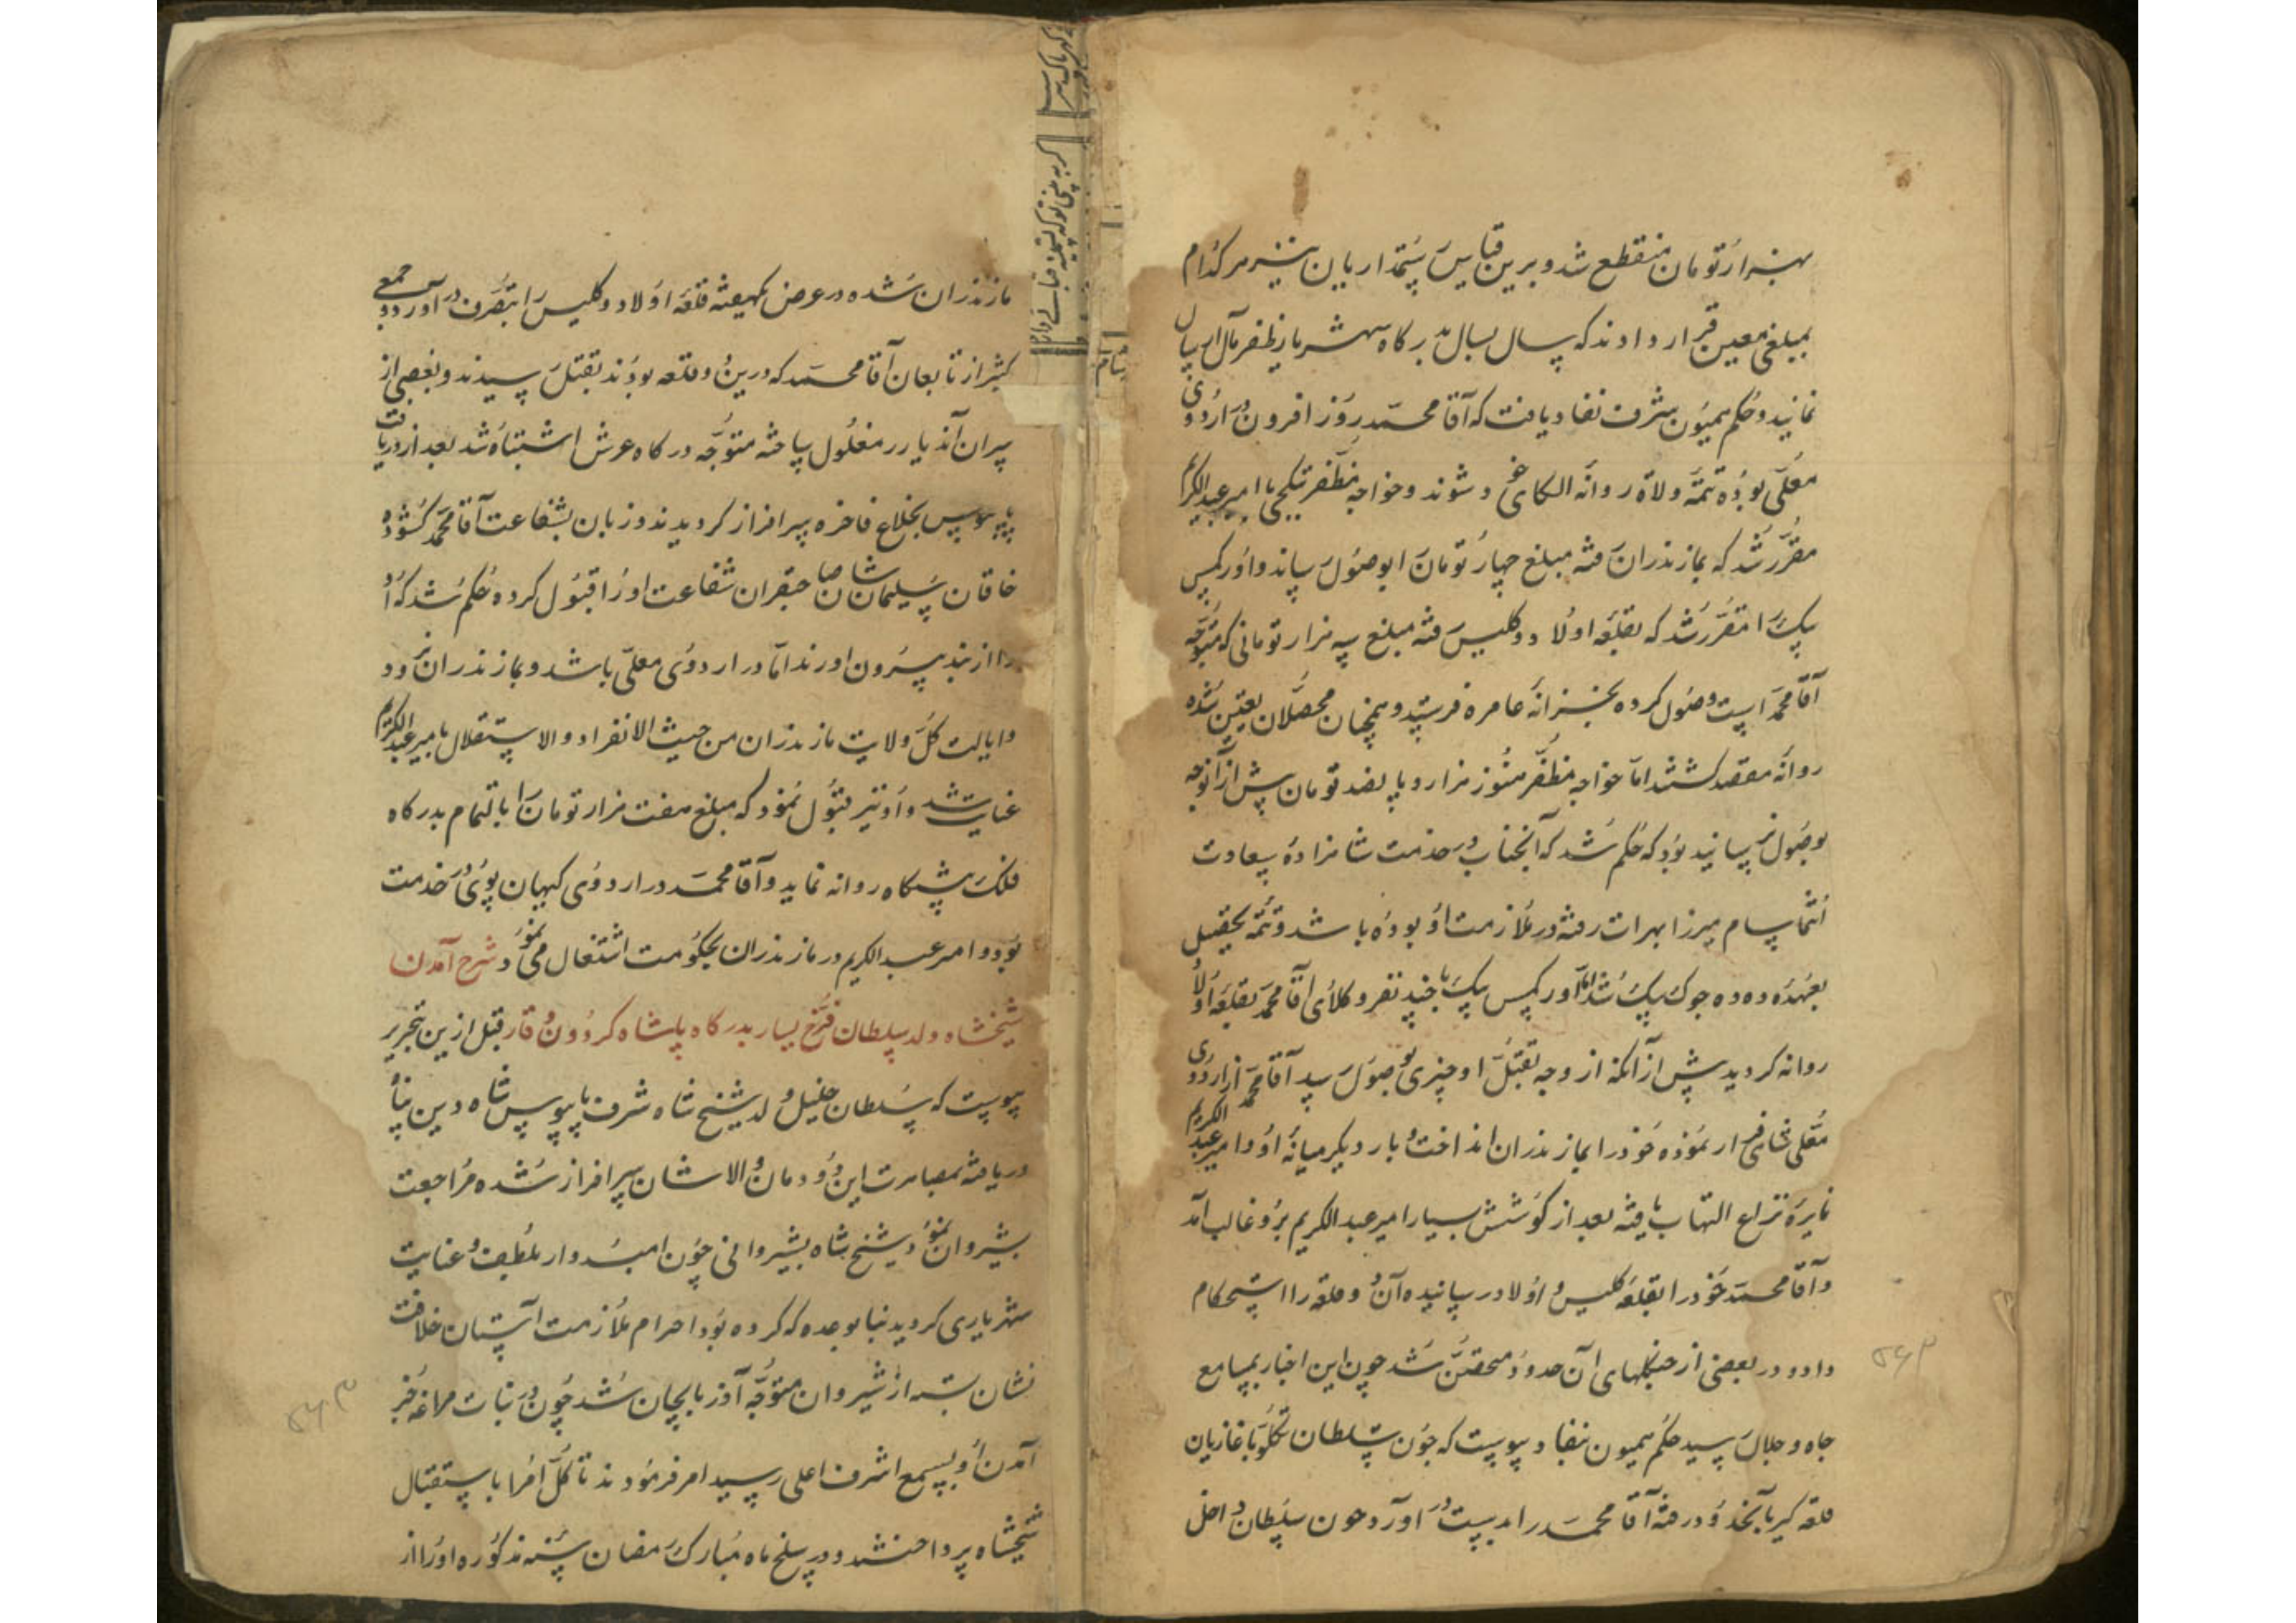 بهزار تومان منقطع شد و برین قیاس رستمداریان نیز هر کدام
بمبلغی معین قرار دادند که سال بسال بدرگاه سپهر مآل ارسال
نمایند و حکم همیون شرف نفاذ یافت که آقا محمد روز افزون در اردوی
معلّی بوده تتمّه ولاة روانه الکای خود شوند و خواجه مظفر بتکچی با امیر عبدالکریم
مقرّر شد که بمازندران رفته مبلغ چهار تومان ابوصول رساند و اورکمس
بیک را مقرّر شد که بقلعه اولاد و کلیس رفته مبلغ سه هزار تومانی که متوجّه
آقا محمد است وصول کرده بخزانه عامره فرستد و همچنان محصّلان تعیین شده
روانه مقصد گشتند امّا خواجه مظفّر هنوز هزار و پانصد تومان بیش از آن وجه
بوصول نرسانیده بود که حکم شد که آنجناب در خدمت شاهزاده سعادت
انتما سام میرزا بهرات رفته در ملازمت او بوده باشد و تتمّه تحصیل
بعهده ده ده جوک بیک شد امّا اورکمس بیک با چند نفر وکلای آقا محمد بقلعه اولاد
روانه کردید پیش از آنکه از وجه تقبّل او چیزی بوصول رسد آقا محمد از اردوی
معلّی شاهی فرار نموده خود را بمازندران انداخت و بار دیگر میانه او و امیر عبد الکریم
نایره نزاع التهاب یافته بعد از کوشش بسیار امیر عبد الکریم برو غالب آمد
و آقا محمد خود را بقلعه کلیس و اولاد رسانیده آن دو قلعه را استحکام
داد و در بعضی از جنگلهای آن حدود متحصّن شد چون این اخبار بمسامع
جاه و جلال رسید حکم همیون بنفاذ پیوست که جون سلطان تکلو با غازیان
قلعه گیر بآنحدود رفته آقا محمد را بدست در آورد جون سلطان داخل
مازندران شده در عرض یکهفته قلعه اولاد و کلیس را بتصرف در آورد و جمعی
کثیر از تابعان آقا محمد که درین دو قلعه بودند بقتل رسیدند و بعضی از
سران آندیار در مغلول ساخته متوجّه درگاه عرش اشتباه شد بعد از دریافت
پابوس بخلاع فاخره سرافراز کردیدند و زبان بشفاعت آقا محمد گشوده
خاقان سلیمان شان صاحبقران شفاعت او را قبول کرده حکم شد که او
را از بند بیرون اورند امّا در اردوی معلّی باشد و بمازندران نرود
و ایالت کل ولایت مازندران من حیث الانفراد و الاستقلال بامیر عبد الکریم
عنایت شد و او نیز قبول نمود که مبلغ هفت هزار تومان را بالتمام بدرگاه
فلک پیشگاه روانه نماید و آقا محمد در اردوی کیهان پوی در خدمت
بود و امیر عبد الکریم در مازندران بحکومت اشتغال می نمود شرح آمدن
شیخشاه ولد سلطان فرّخ یسار بدرگاه پادشاه کردون وقار قبل ازین تحریر
پیوست که سلطان خلیل ولد شیخ شاه شرف پابوس شاه دین پناه
دریافته بمصاهرت این دودمان والاشان سرافراز شده مراجعت
بشیروان نمود شیخ شاه بشیروانی چون امیدوار بلطف و عنایت
شهریاری کردید بنا بوعده که کرده بود احرام ملازمت آستان خلافت
نشان بسته از شیروان متوجّه آذربایجان شد چون در نبات مراغه خبر
آمدن او بسمع اشرف اعلی رسید امر فرمودند تا کل امرا باستقبال
شیخشاه پرداختند و در سلخ ماه مبارک رمضان سنه مذکوره او را از